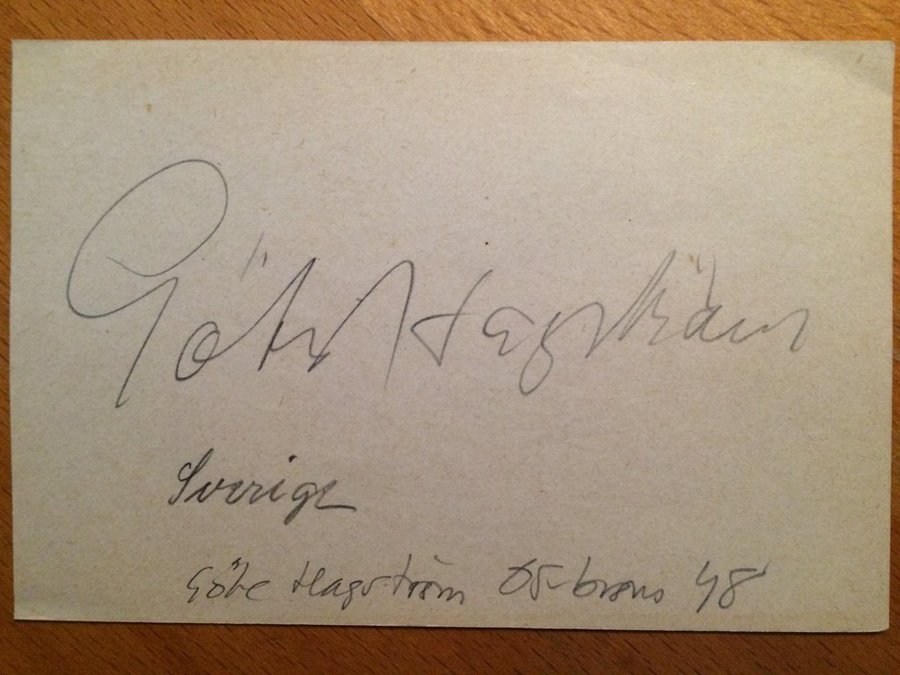 Göte Hagström
Sverige
Göte Hagström OS-brons 48